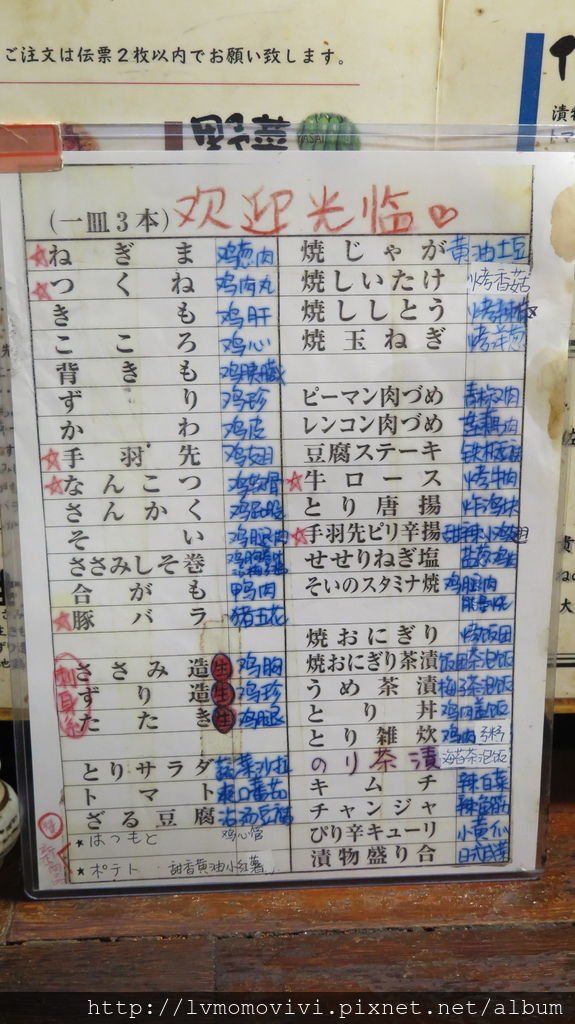 ご注文は伝票２枚以内でお願い致します。
野菜
YASAI
(一皿３本) 欢迎光临♡
☆ねぎま 鸡葱肉
☆つくね 鸡肉丸
きも 鸡肝
こころ 鸡心
背きも 鸡胰臓
ずり 鸡珍
かわ 鸡皮
☆手羽先 鸡翅
☆なんこつ 鸡软骨
さんかく 鸡屁股
そい 鸡腿肉
ささみしそ巻
合がも 鸭肉
☆豚バラ 猪五花
ささみ造 生 鸡胸
ずり造 生 鸡珍
たたき 生 鸡腿
とりサラダ 蔬菜沙拉
トマト 爽口番茄
ざる豆腐
★はつもと 鸡心管
★ポテト 甜香黄油小红薯
焼じゃが 黄油土豆
焼しいたけ 烤香菇
焼ししとう 烤辣椒
焼玉ねぎ 烤洋葱
ピーマン肉づめ 青椒肉
レンコン肉づめ 莲藕肉
豆腐ステーキ 铁板豆腐
☆牛ロース 烤牛肉
とり唐揚 炸鸡块
☆手羽先ピリ辛揚 甜辣小鸡翅
せせりねぎ塩 盐葱鸡肉
そいのスタミナ焼 鸡腿肉
焼おにぎり 烤饭团
焼おにぎり茶漬 饭团茶泡饭
うめ茶漬 梅子茶泡饭
とり丼 鸡肉盖饭
とり雑炊 鸡肉粥
のり茶漬 海苔茶泡饭
キムチ 辣白菜
チャンジャ
ぴり辛キューリ 小黄瓜
漬物盛り合 日式泡菜
http://lvmomovivi.pixnet.net/album